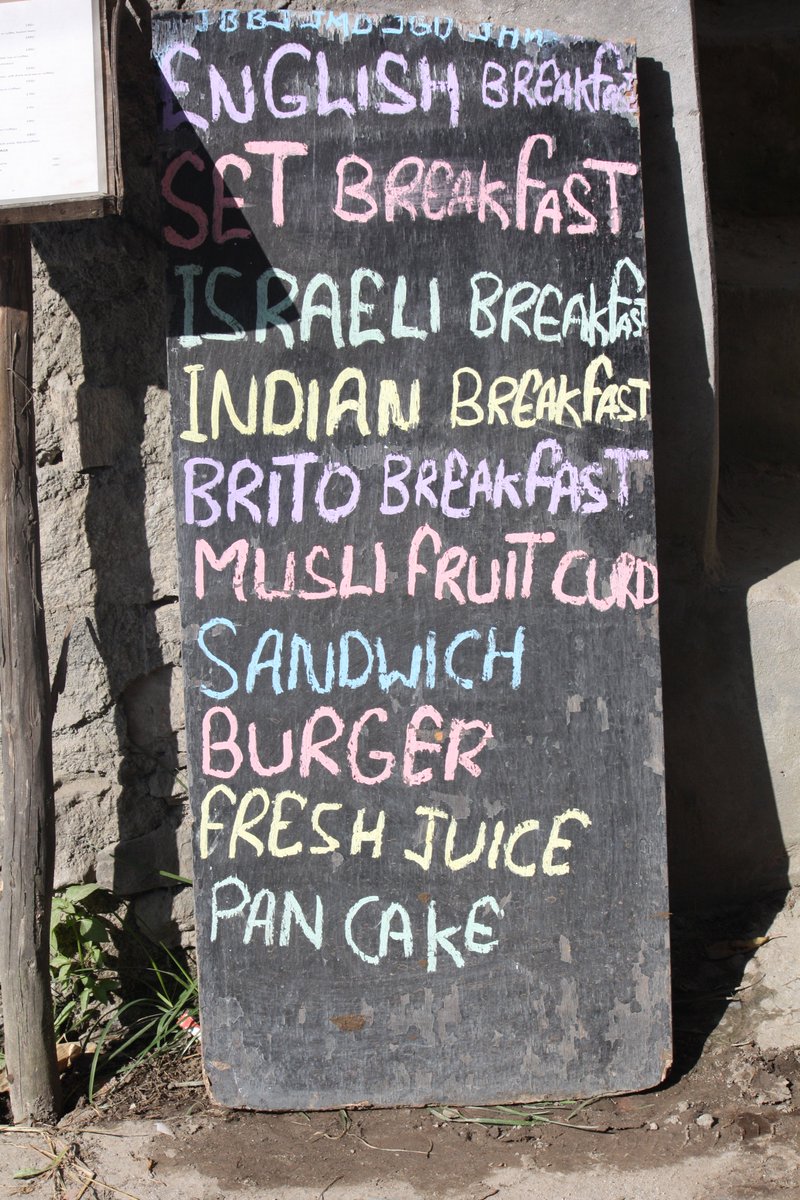 ENGLISH BREAKfAST
SET BREAKfAST
ISRAELI BREAKfAST
INDIAN BREAKfAST
BRITO BREAKfAST
MUSLI fRUIT CURD
SANDWICH
BURGER
fRESH JUICE
PAN CAKE